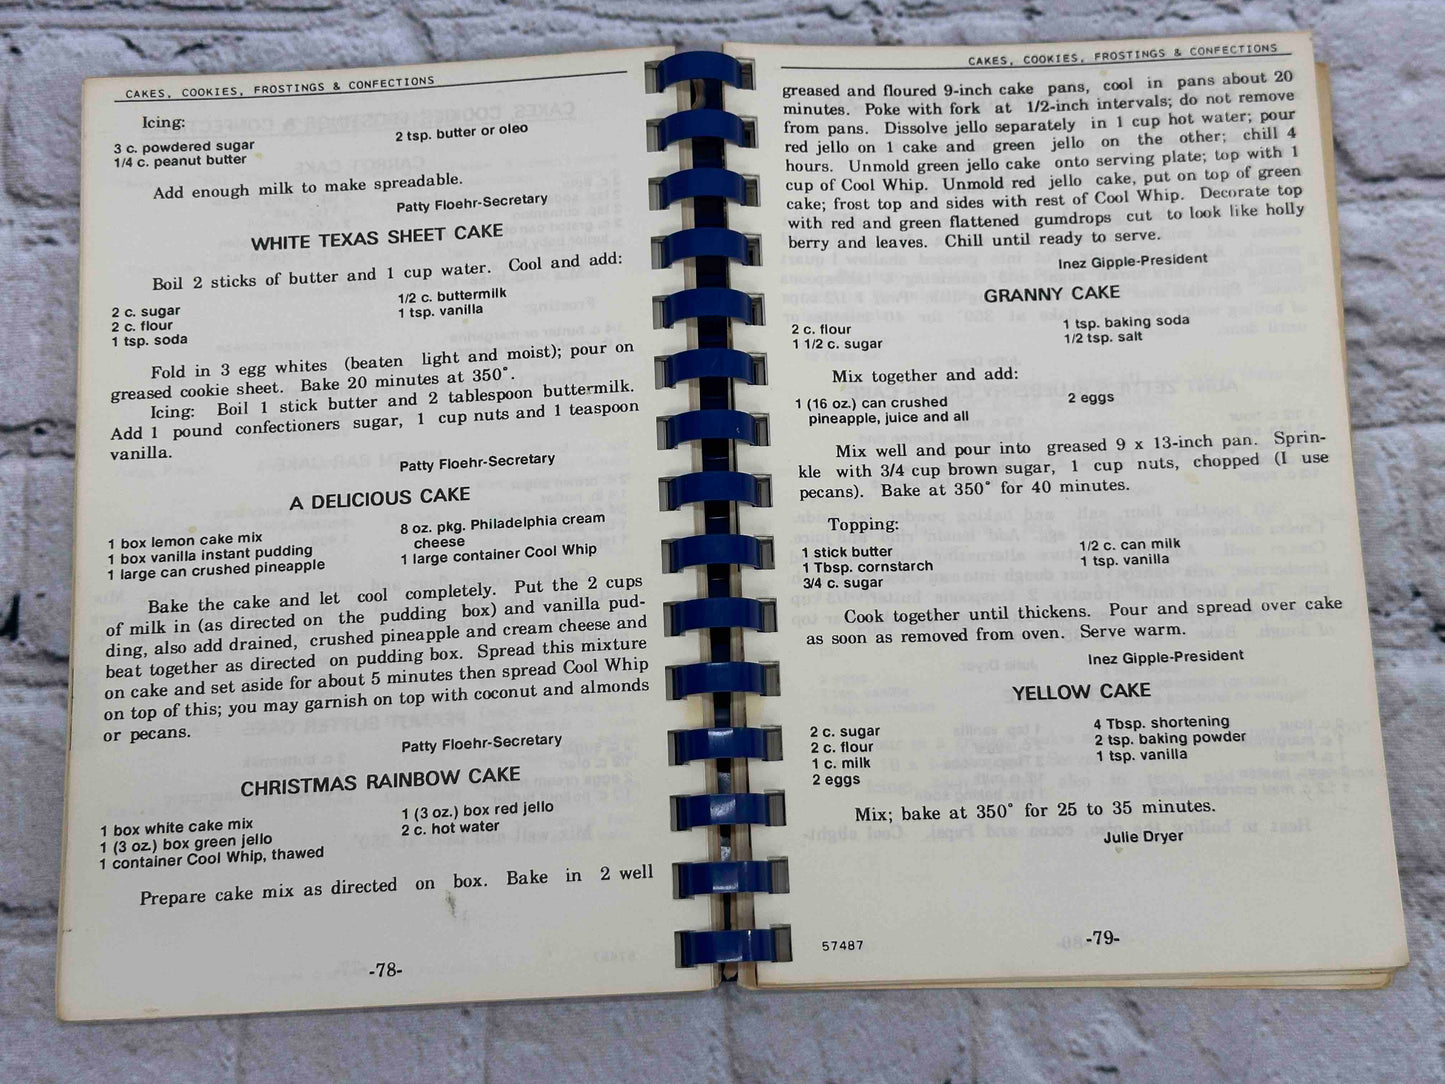 CAKES, COOKIES, FROSTINGS & CONFECTIONS
Icing:
3 c. powdered sugar
1/4 c. peanut butter
2 tsp. butter or oleo
Add enough milk to make spreadable.
Patty Floehr-Secretary
WHITE TEXAS SHEET CAKE
Boil 2 sticks of butter and 1 cup water. Cool and add:
2 c. sugar
2 c. flour
1 tsp. soda
1/2 c. buttermilk
1 tsp. vanilla
Fold in 3 egg whites (beaten light and moist); pour on
greased cookie sheet. Bake 20 minutes at 350°.
Icing: Boil 1 stick butter and 2 tablespoon buttermilk.
Add 1 pound confectioners sugar, 1 cup nuts and 1 teaspoon
vanilla.
Patty Floehr-Secretary
A DELICIOUS CAKE
1 box lemon cake mix
1 box vanilla instant pudding
1 large can crushed pineapple
8 oz. pkg. Philadelphia cream
cheese
1 large container Cool Whip
Bake the cake and let cool completely. Put the 2 cups
of milk in (as directed on the pudding box) and vanilla pud-
ding, also add drained, crushed pineapple and cream cheese and
beat together as directed on pudding box. Spread this mixture
on cake and set aside for about 5 minutes then spread Cool Whip
on top of this; you may garnish on top with coconut and almonds
or pecans.
Patty Floehr-Secretary
CHRISTMAS RAINBOW CAKE
1 box white cake mix
1 (3 oz.) box green jello
1 container Cool Whip, thawed
1 (3 oz.) box red jello
2 c. hot water
Prepare cake mix as directed on box. Bake in 2 well
-78-
CAKES, COOKIES, FROSTINGS & CONFECTIONS
greased and floured 9-inch cake pans, cool in pans about 20
minutes. Poke with fork at 1/2-inch intervals; do not remove
from pans. Dissolve jello separately in 1 cup hot water; pour
red jello on 1 cake and green jello on the other; chill 4
hours. Unmold green jello cake onto serving plate; top with 1
cup of Cool Whip. Unmold red jello cake, put on top of green
cake; frost top and sides with rest of Cool Whip. Decorate top
with red and green flattened gumdrops cut to look like holly
berry and leaves. Chill until ready to serve.
Inez Gipple-President
GRANNY CAKE
2 c. flour
1 1/2 c. sugar
1 tsp. baking soda
1/2 tsp. salt
Mix together and add:
1 (16 oz.) can crushed
pineapple, juice and all
2 eggs
Mix well and pour into greased 9 x 13-inch pan. Sprin-
kle with 3/4 cup brown sugar, 1 cup nuts, chopped (I use
pecans). Bake at 350° for 40 minutes.
Topping:
1 stick butter
1 Tbsp. cornstarch
3/4 c. sugar
1/2 c. can milk
1 tsp. vanilla
Cook together until thickens. Pour and spread over cake
as soon as removed from oven. Serve warm.
Inez Gipple-President
YELLOW CAKE
2 c. sugar
2 c. flour
1 c. milk
2 eggs
4 Tbsp. shortening
2 tsp. baking powder
1 tsp. vanilla
Mix; bake at 350° for 25 to 35 minutes.
Julie Dryer
57487
-79-